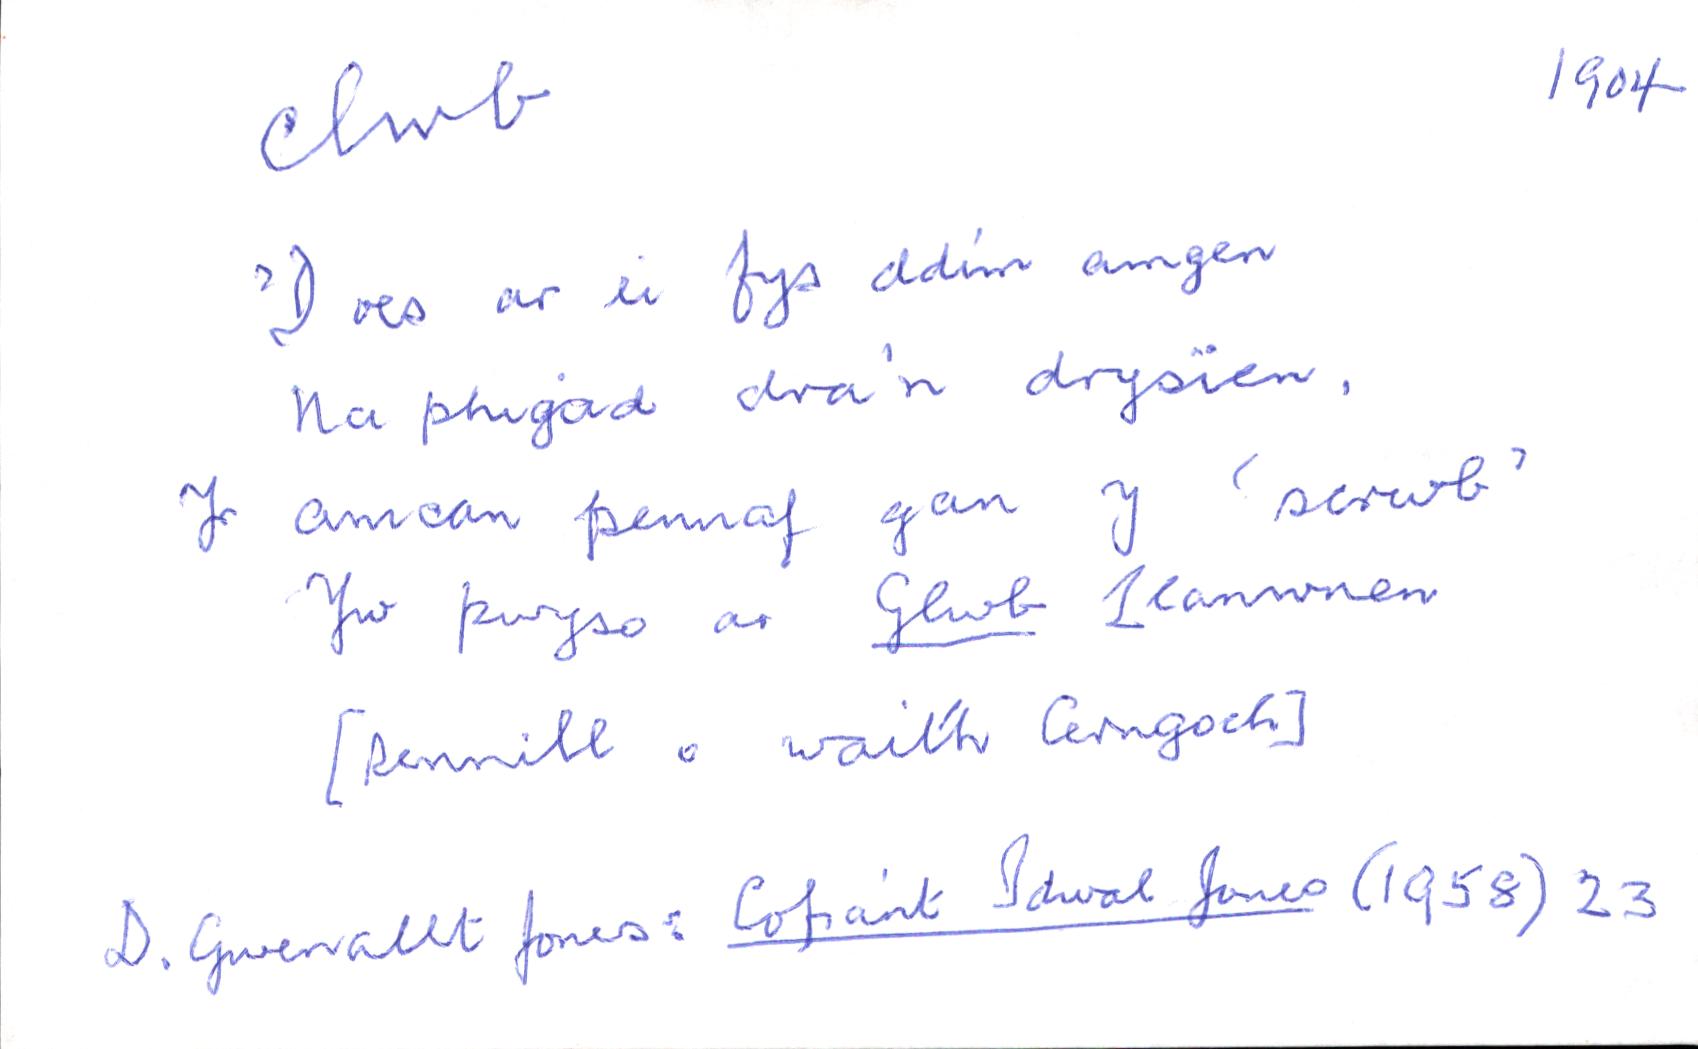 clwb
1904
'Does ar ei fys ddim amgen
Na phigad dra'n drysïen,
Yr amcan pennaf gan y 'scrwb'
Yw pwyso ar Glwb Llanwnen
[Pennill o waith Cerngoch]
D. Gwenallt Jones: Cofiant Idwal Jones (1958) 23